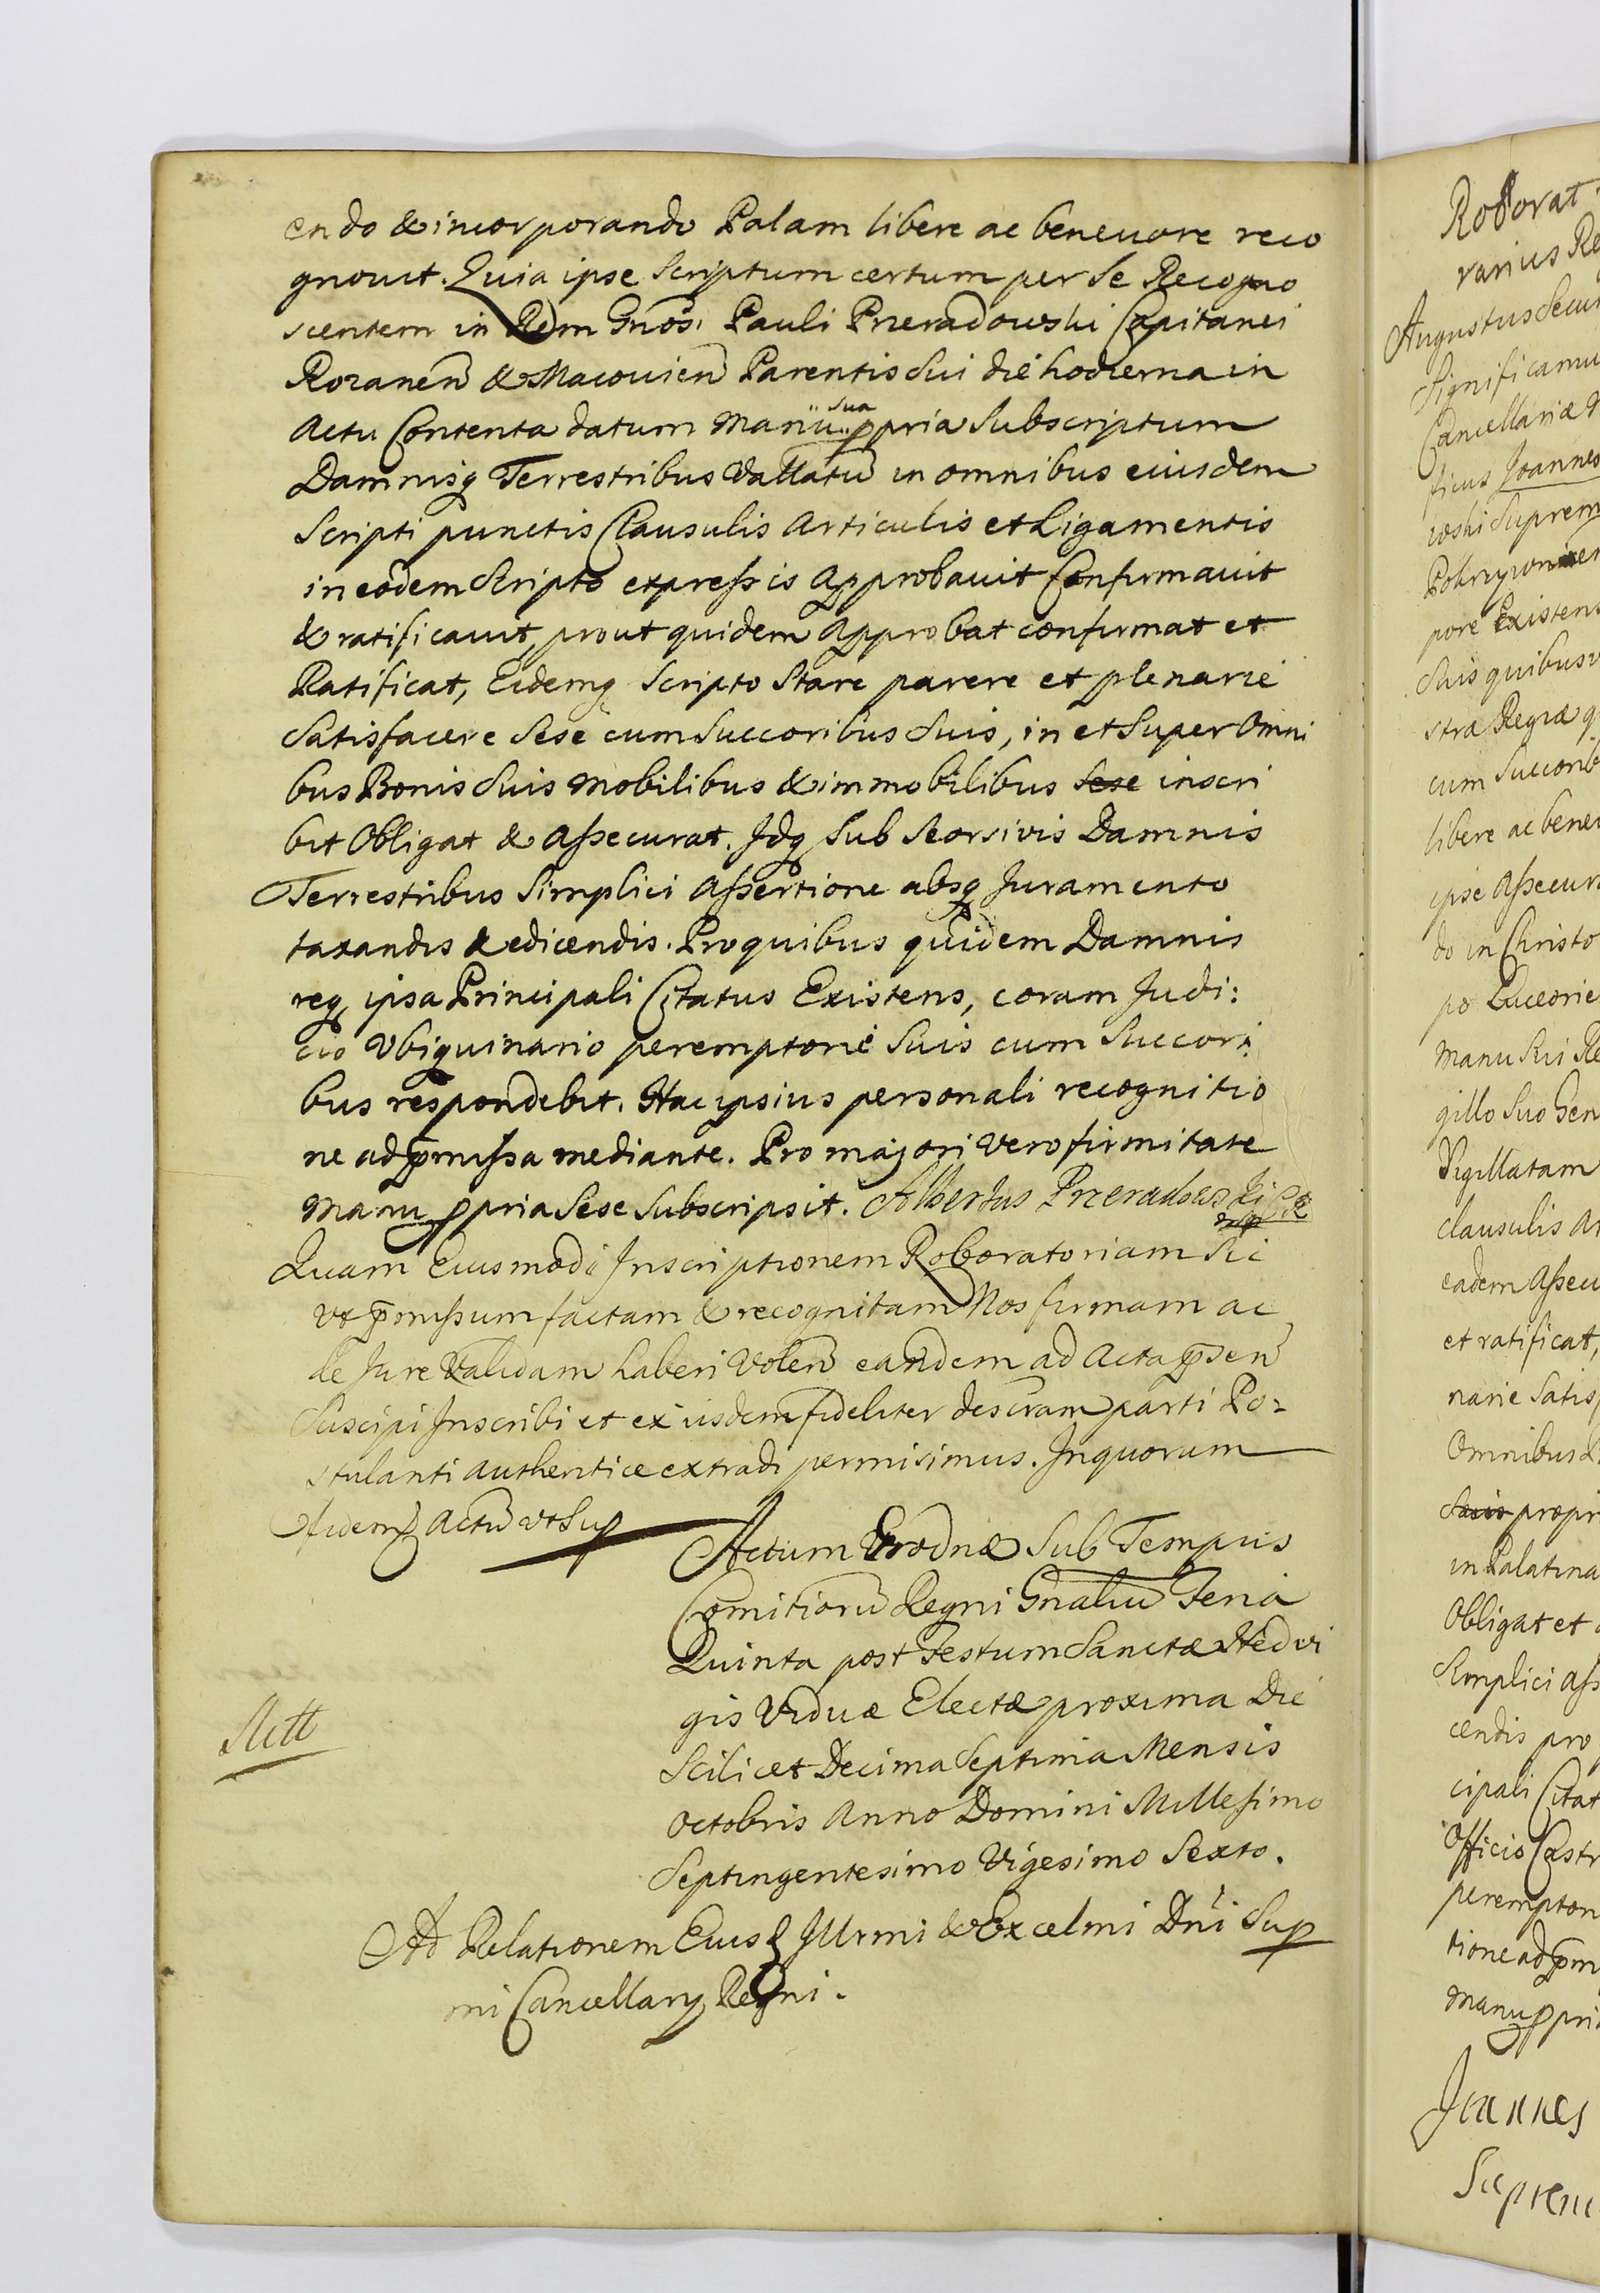 endo & incorporando Palam libere ac beneuore reco
gnouit. Quia ipse Scriptum certum per Se Recogno
scentem in Rem Gnosi Pauli Przeradowski Capitanei
Rozanen & Macouien Parentis Sui die hodierna in
Actu Contenta datum Manu sua ppria Subscriptum
Damnisq Terrestribus Vallatu in omnibus eiusdem
Scripti punctis Clausulis Articulis et Ligamentis
in eodem Scripto expressis Approbauit Confirmauit
& ratificauit, prout quidem Approbat confirmat et
Ratificat, Eidemq Scripto Stare parere et plenarie
Satisfacere Sese cum Succoribus Suis, in et Super Omni
bus Bonis Suis Mobilibus & immobilibus Sese inscri
bit Obligat & Assecurat. Idq Sub Seorsivis Damnis
Terrestribus Simplici Assertione absq Juramento
taxandis & edicendis. Pro quibus quidem Damnis
req ipsa Principali Citatus Existens, coram Judi:
cio Vbiquinario peremptorie Suis cum Succori:
bus respondebit. Hac ipsius personali recognitio
ne ad pmissa mediante. Pro majori Vero firmitate
Manu ppria Sese Subscripsit. Albertus Przeradowski
Quam Eiusmodi Inscriptionem Roboratoriam Sic
Vt pmissum factam & recognitam Nos firmam ac
de Jure Validam haberi Volen eandem ad Acta psen
Suscipi Inscribi et ex iisdem fideliter descram parti Po:
stulanti authentice extradi permisimus. In quorum
fidem Actu vt Sup
Actum Grodnæ Sub Tempus
Comitioru Regni Gnaliu Feria
Quinta post Festum Sanctæ Hedvi
gis Viduæ Electæ proxima Die
Scilicet Decima Septima Mensis
Octobris Anno Domini Millesimo
Septingentesimo Vigesimo Sexto.
Ad Relationem Eiusd Illrmi & Excelmi Dni Sup
mi Cancellarij Regni.
Roborat
varius Re
Augustus Secun
Significamu
Cancellariæ
ficus Joannes
wski Suprem
pore Existens
Suis quibusv
stra Regia q
cum Succorib
libere ac benev
ipse Assecur
do in Christo
po Luceorie
Manu Sui Re
gillo Suo Gen
Sigillatam
clausulis Ar
eadem Assecu
et ratificat,
narie Satisf
Omnibus &
Suis propri
in Palatina
Obligat et a
Simplici Ass
cendis pro
cipali Citat
Officio Castr
peremptori
tione ad pm
Manu ppri
Joannes
Suprem